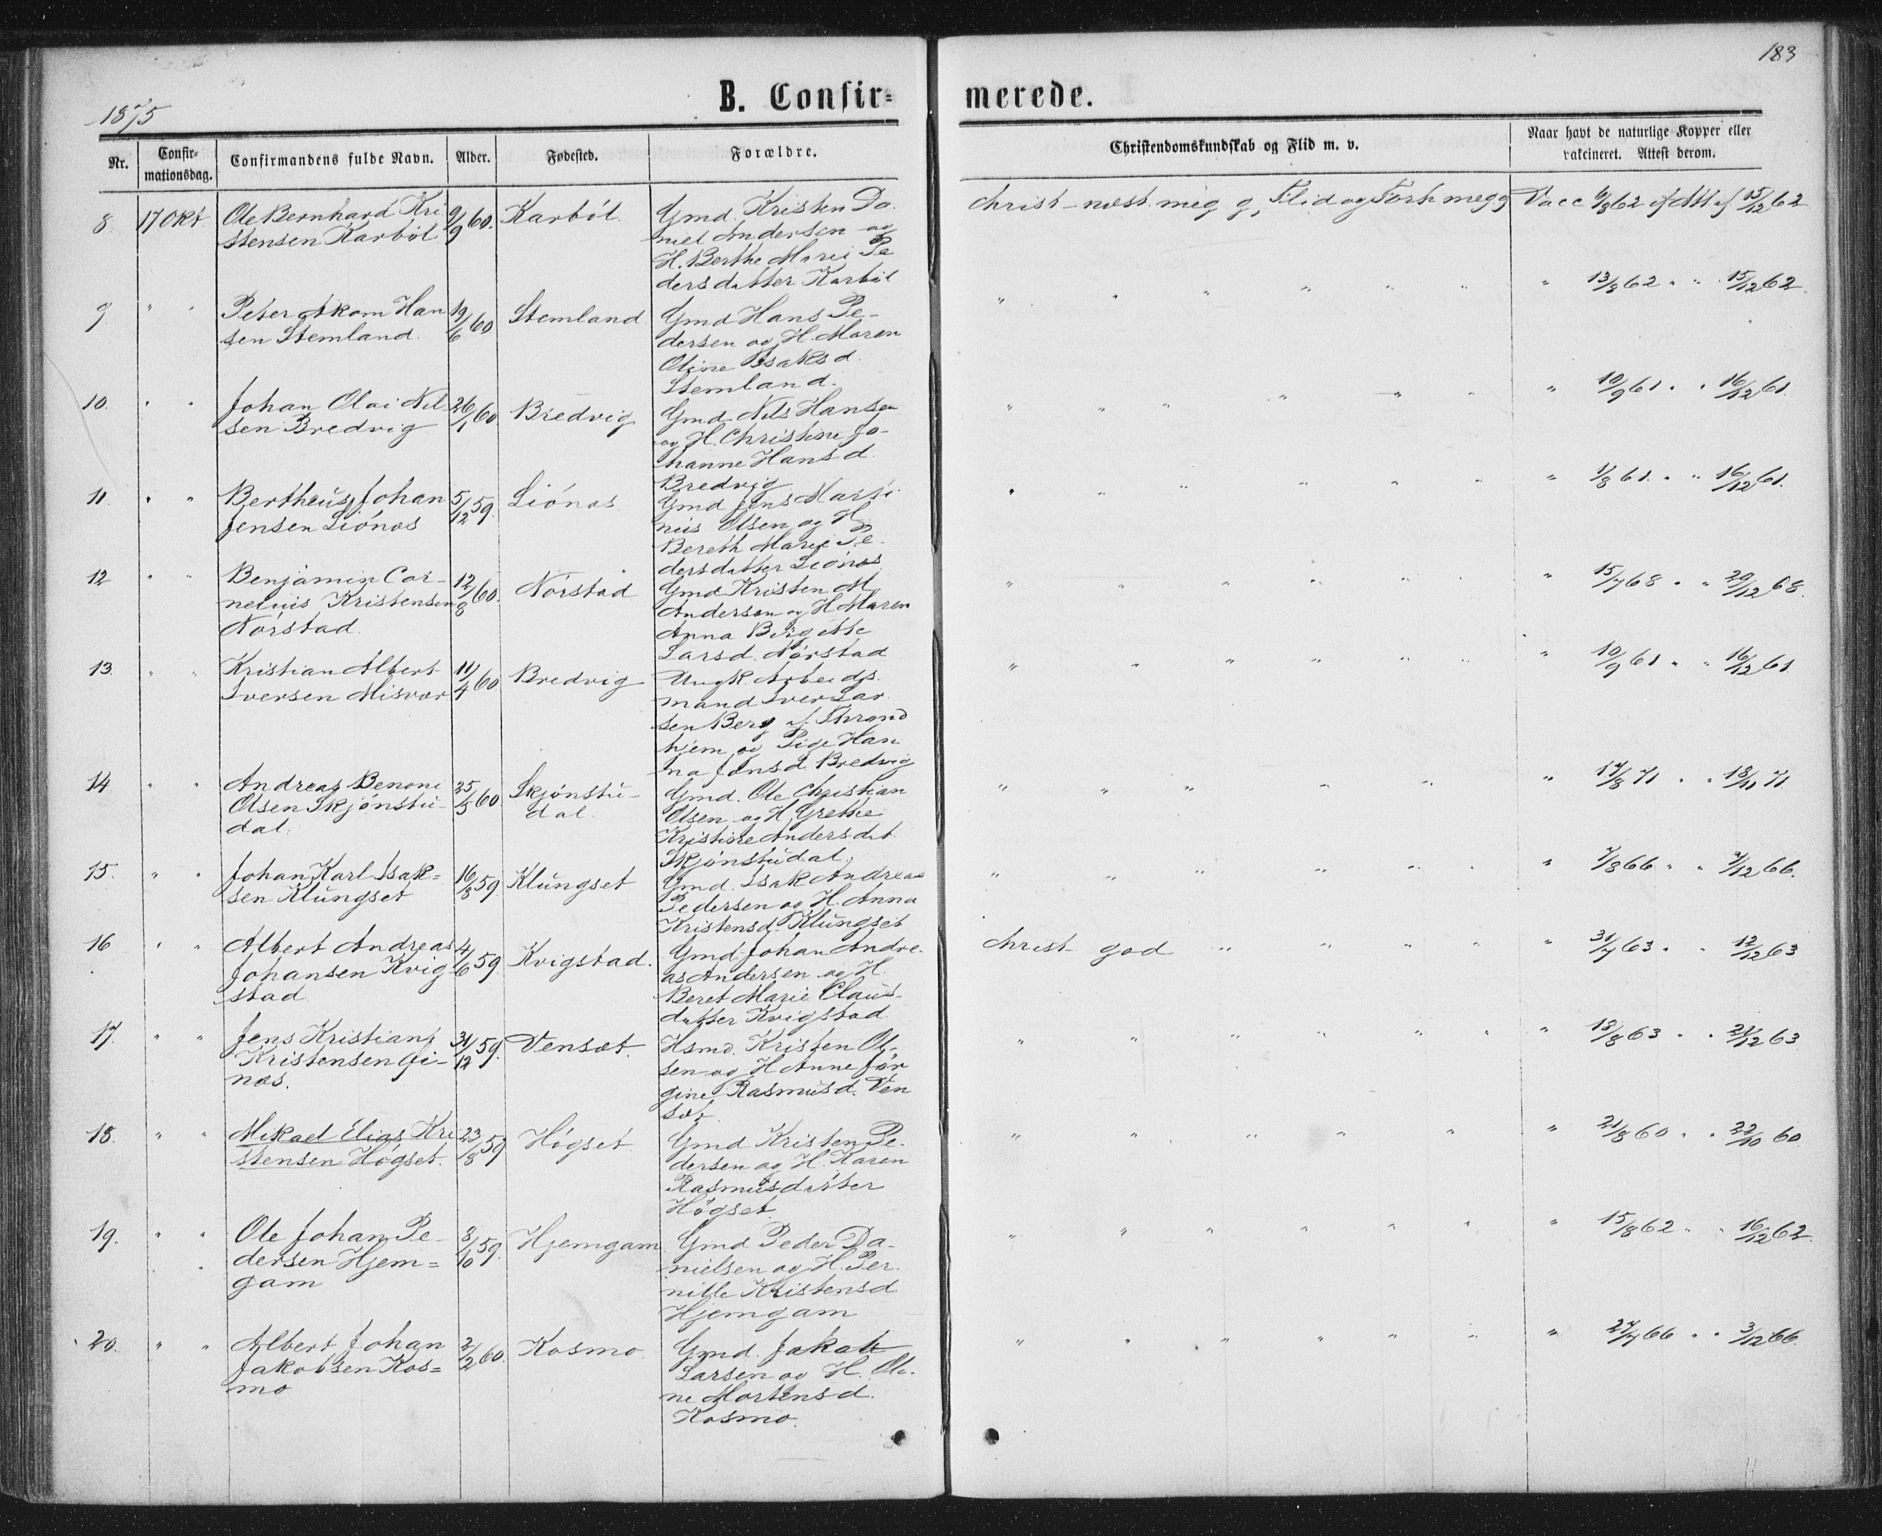 183
1875
B. Confir=
merede.
Nr.
Confir-
mationsdag.
Confirmandens fulde Navn.
Alder.
Fødested.
Forældre.
Christendomskundskab og Flid m. v.
Naar havt de naturlige Kopper eller
vakcineret. Attest derom.
8. 17 Okt Ole Bernhard Kri
stensen Karbøl
9/9 60. Karbøl.
Gmd. Kristen Da
niel Andersen og
H. Berthe Marie Pe
dersdatter Karbøl
Christ - næst. meg. g, Flid og Forh. meg g Vacc 6/8 62 Att af 15/12 62
9 " " Peter Han
sen Stemland.
19/6 60 Stemland
Gmd Hans Pe-
dersen og H. Maren
Oline Isaksd.
Stemland.
" " " " " " " 13/8 62 " " 15/12 62
10. " " Johan Olai Nil
sen Bredvig
26/1 60 Bredvig
Gmd. Nils Hansen
og H. Christine Jo-
hanne Hansd.
Bredvig
" " " " " " " 10/9 61 " " 16/12 61.
11. " " Bertheus Johan
Jensen Liönæs
5/12 59. Liónæs.
Gmd Jens Marti
nus Olsen og H
Bereth Marie Pe-
dersdatter Liónæs
" " " " " " " 1/8 61. " " 16/12 61.
12 " " Benjamin Cor-
nelius Kristensen
Nórstad.
12/8 60. Nórstad
Gmd Kristen M.
Andersen og H Maren
Anna Bergitte
Larsd. Nórstad
" " " " " " " 15/7 68 " " 29/12 68.
13. " " Kristian Albert
Iversen Misvær
11/4 60 Bredvig
Ungk Arbeids
mand Iver Lar
sen Berg af Thrond
hjem og Pige Han
na Jensd. Bredvig
" " " " " " " 10/9 61 " " 16/12 61.
14 " " Andreas Benoni
Olsen Skjónstu-
dal.
25/5 60 Skjónstu-
dal.
Gmd. Ole Christian
Olsen og H. Grethe
Kristine Andersdat
Skjónstudal.
" " " " " " 17/8 71 " " 18/11 71.
15. " " Johan Karl Isak=
sen Klungset
16/8 59. Klungset
Gmd. Isak Andreas
Pedersen og H. Anna
Kristensd. Klungset
" " " " " " " 7/8 66 " " /12 66.
16 " " Albert Andreas
Johansen Kvig
stad
4/6 59. Kvigstad.
Gmd Johan Andre-
as Andersen og H.
Beret Marie Claus-
datter Kvigstad
Christ - god " " " " " 31/7 63 " " 12/12 63
17. " " Jens Kristian
Kristensen
næs.
31/12 59. Vensæt.
Hsmd. Kristen Ol-
sen og H Anne Jør
gine Rasmusd. Ven
sæt
" " " " " " " 18/8 63 " " 21/12 63
18. " " Mikael Elias Kri
stensen Høgset.
23/8 59 Høgset.
Gmd Kristen Pe-
dersen og H. Karen
Rasmusdatter
Høgset.
" " " " " " 21/8 60 " " 22/10 60
19. " " Ole Johan Pe-
dersen Hjem=
gam
8/10 59. Hjemgam
Gmd Peder Da-
nielsen og H. Per-
nille Kristensd
Hjemgam
" " " " " " " 15/8 62 " " 16/12 62.
20. " " Albert Johan
Jakobsen Kos=
mo
2/2 60. Kosmo.
Gmd. Jakob
Larsen og H. Ole-
ne Mortensd.
Kosmo.
" " " " " " " 27/7 66 " " 3/12 66.